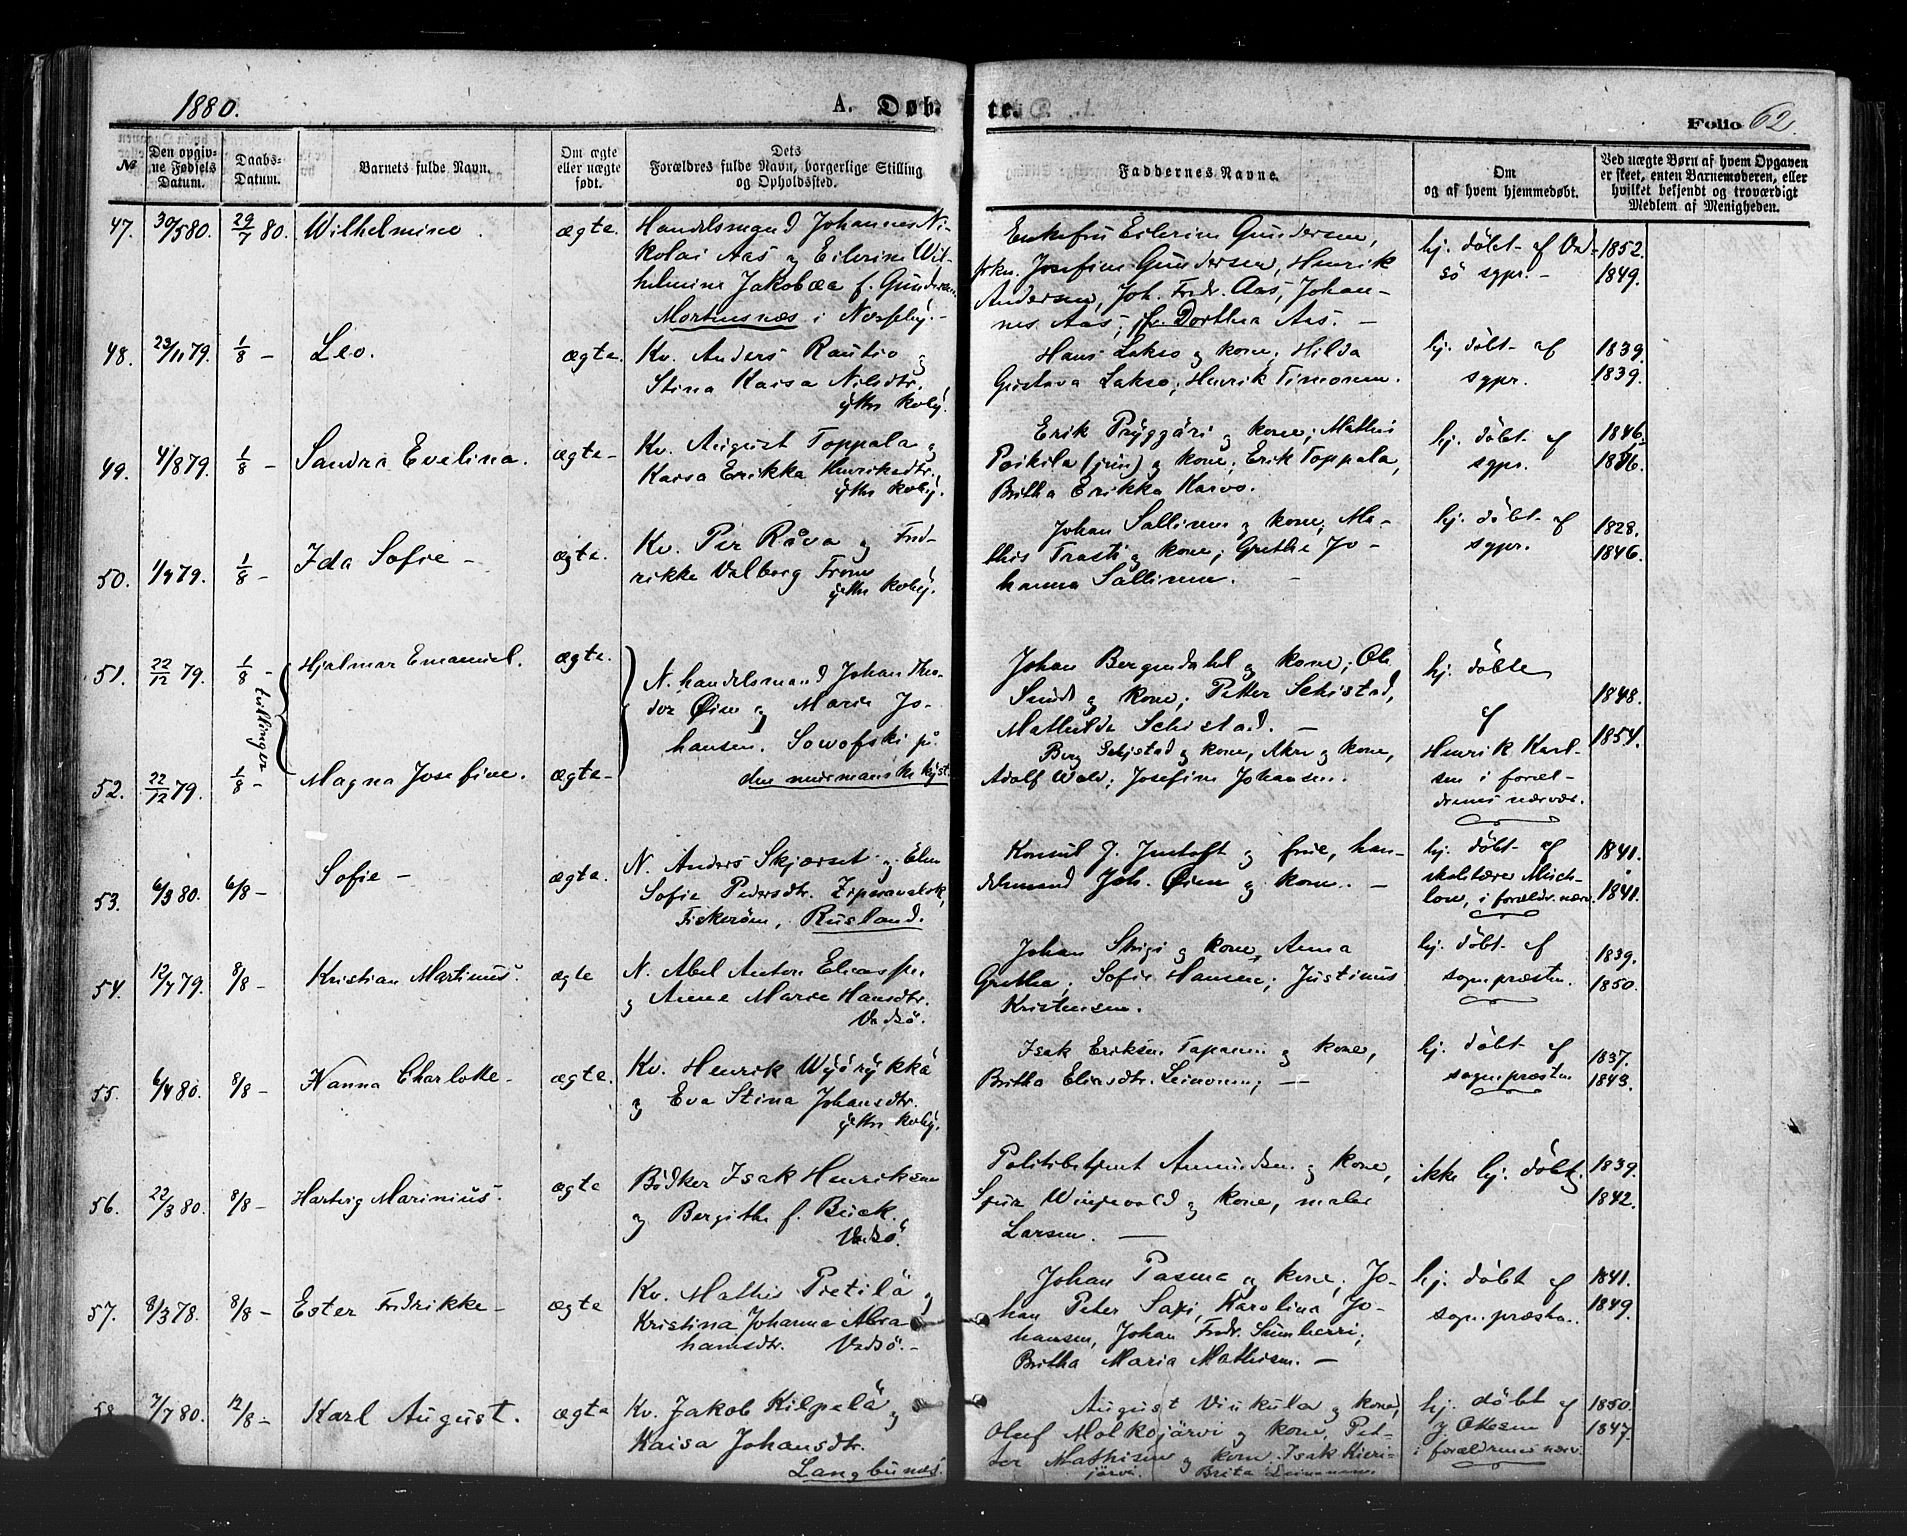 1880.
A. Døbte.
Folio 62.
№
Den opgivne Fødsels Datum.
Daabs-Datum.
Barnets fulde Navn.
Om ægte eller uægte født.
Dets Forældres fulde Navn, borgerlige Stilling og Opholdssted.
Faddernes Navne.
Om og af hvem hjemmedøbt.
Ved uægte Børn af hvem Opgaven er skeet, enten Barnemoderen, eller hvilket bekjendt og troværdigt Medlem af Menigheden.
47. 30/5 80. 29/7 80. Wilhelmine. ægte.
Handelsmand Johannes Ni-
kolai Aas og Eilerine Wil-
helmine Jakobæa f. Gundersen
Mortensnæs i Næsseby.-
Enkefru Eilerine Gundersen,
frkn. Josefine Gundersen, Henrik
Andersen, Joh. Fredr. Aas, Johan-
nes Aas, Dorthea Aas. -
hj. døbt af
sgpr. -
1852.
1849.
48. 23/11 79. 1/8 - Leo. ægte.
Kv. Anders Rautio og
Stina Kaisa Nilsdtr.
ytre kvby.
Hans Lakso og kone, Hilda
Gustava Lakso, Henrik Timonen.
hj. døbt af
sgpr.
1839.
1839.
49. 4/8 79. 1/8 - Sandra Evelina. ægte-
Kv. August Toppala og
Kaisa Erikka Henriksdtr.
ytre kvby.
Erik Pryggäri og kone, Mathis
Poikila (jun) og kone, Erik Toppala,
Britha Erikka Karvo.
hj. døbt af
sgpr.
1846.
50. 1/7 79. 1/8 - Ida Sofie - ægte.
Kv. Per Råva og Fred-
rikke Valborg From
ytre kvby.
Johan Sallinen og kone, Ma-
this Trasti og kone, Grethe Jo-
hanna Sallinen. -
hj. døbt af
sgpr.
1828.
1846.
51. 22/12 79. 1/8 - Hjalmar Emanuel. ægte.
tvillinger
52. 22/12 79. 1/8 - Magna Josefine. ægte-
N. handelsmand Johan Theo-
dor Øien og Marie Jo-
hansen. Sowofski på
den murmanske kyst.
Johan Bergendahl og kone, Ole
Sund og kone, Petter Schistad,
Mathilde Schistad. -
Berg Schjstad og kone, Aker og kone,
Adolf Wold, Josefine Johansen.
hj. døbte
af
Henrik Karl-
sen i foræl-
drenes nærvær.
1848.
1854.
53. 6/3 80. 6/8 - Sofie - ægte.
N. Anders Skjærset og Elen
Sofie Pedersdtr. Zipenavolok,
Fiskerøen, Rusland.
Konsul J. og frue, han-
delsmand Joh. Øien og kone. -
hj. døbt af
skolelærer
i forældr. nærv.
1841.
1841.
54. 12/7 79. 8/8 - Kristian Martinus. ægte
N. Abel Anton
og Anne Marie Hansdtr.
Vadsø.
Johan og kone, Anna
Grethe, Sofie Hansen, Justinus
Kristensen.
hj. døbt af
sognepræsten.
1839.
1850.
55. 6/4 80. 8/8 - Hanna Charlotte - ægte.
Kv. Henrik Wyörykkä
og Eva Stina Johansdtr.
ytre kvby.
Isak Eriksen Tapanin og kone,
Britha Eliasdtr. Leinonen, -
hj. døbt af
sognepræsten
1837.
1843.
56. 22/3 80. 8/8 - Hartvig Marinius. ægte
Bødker Isak Henriksen
og Bergithe f. Beck.
Vadsø.
Politibetjent Amundsen og kone,
og kone, maler
Larsen. -
ikke hj. døbt
1839.
1842.
57. 8/3 78. 8/8 - Ester Fredrikke - ægte
Kv. Mathis Pietilä og
Kristina Johanna Abra-
hamsdtr. Vadsø. -
Johan Pasma og kone, Jo-
han Peter Saxi, Karolina Jo-
hansen, Johan Fredr.
Britha Maria Mathisen. -
hj. døbt af
sognepræsten.
1841.
1849.
58. 7/7 80. 12/8 - Karl August. ægte
Kv. Jakob Kilpelä og
Kaisa Johansdtr.
Langbunes.
August og kone,
Oluf Molkojärvi og kone, Pet-
ter Mathisen og kone. Isak Kieri-
järvi. Brita Leinonen
hj. døbt af
J. Ottesen
i forældrenes nærv.
1850.
1847.